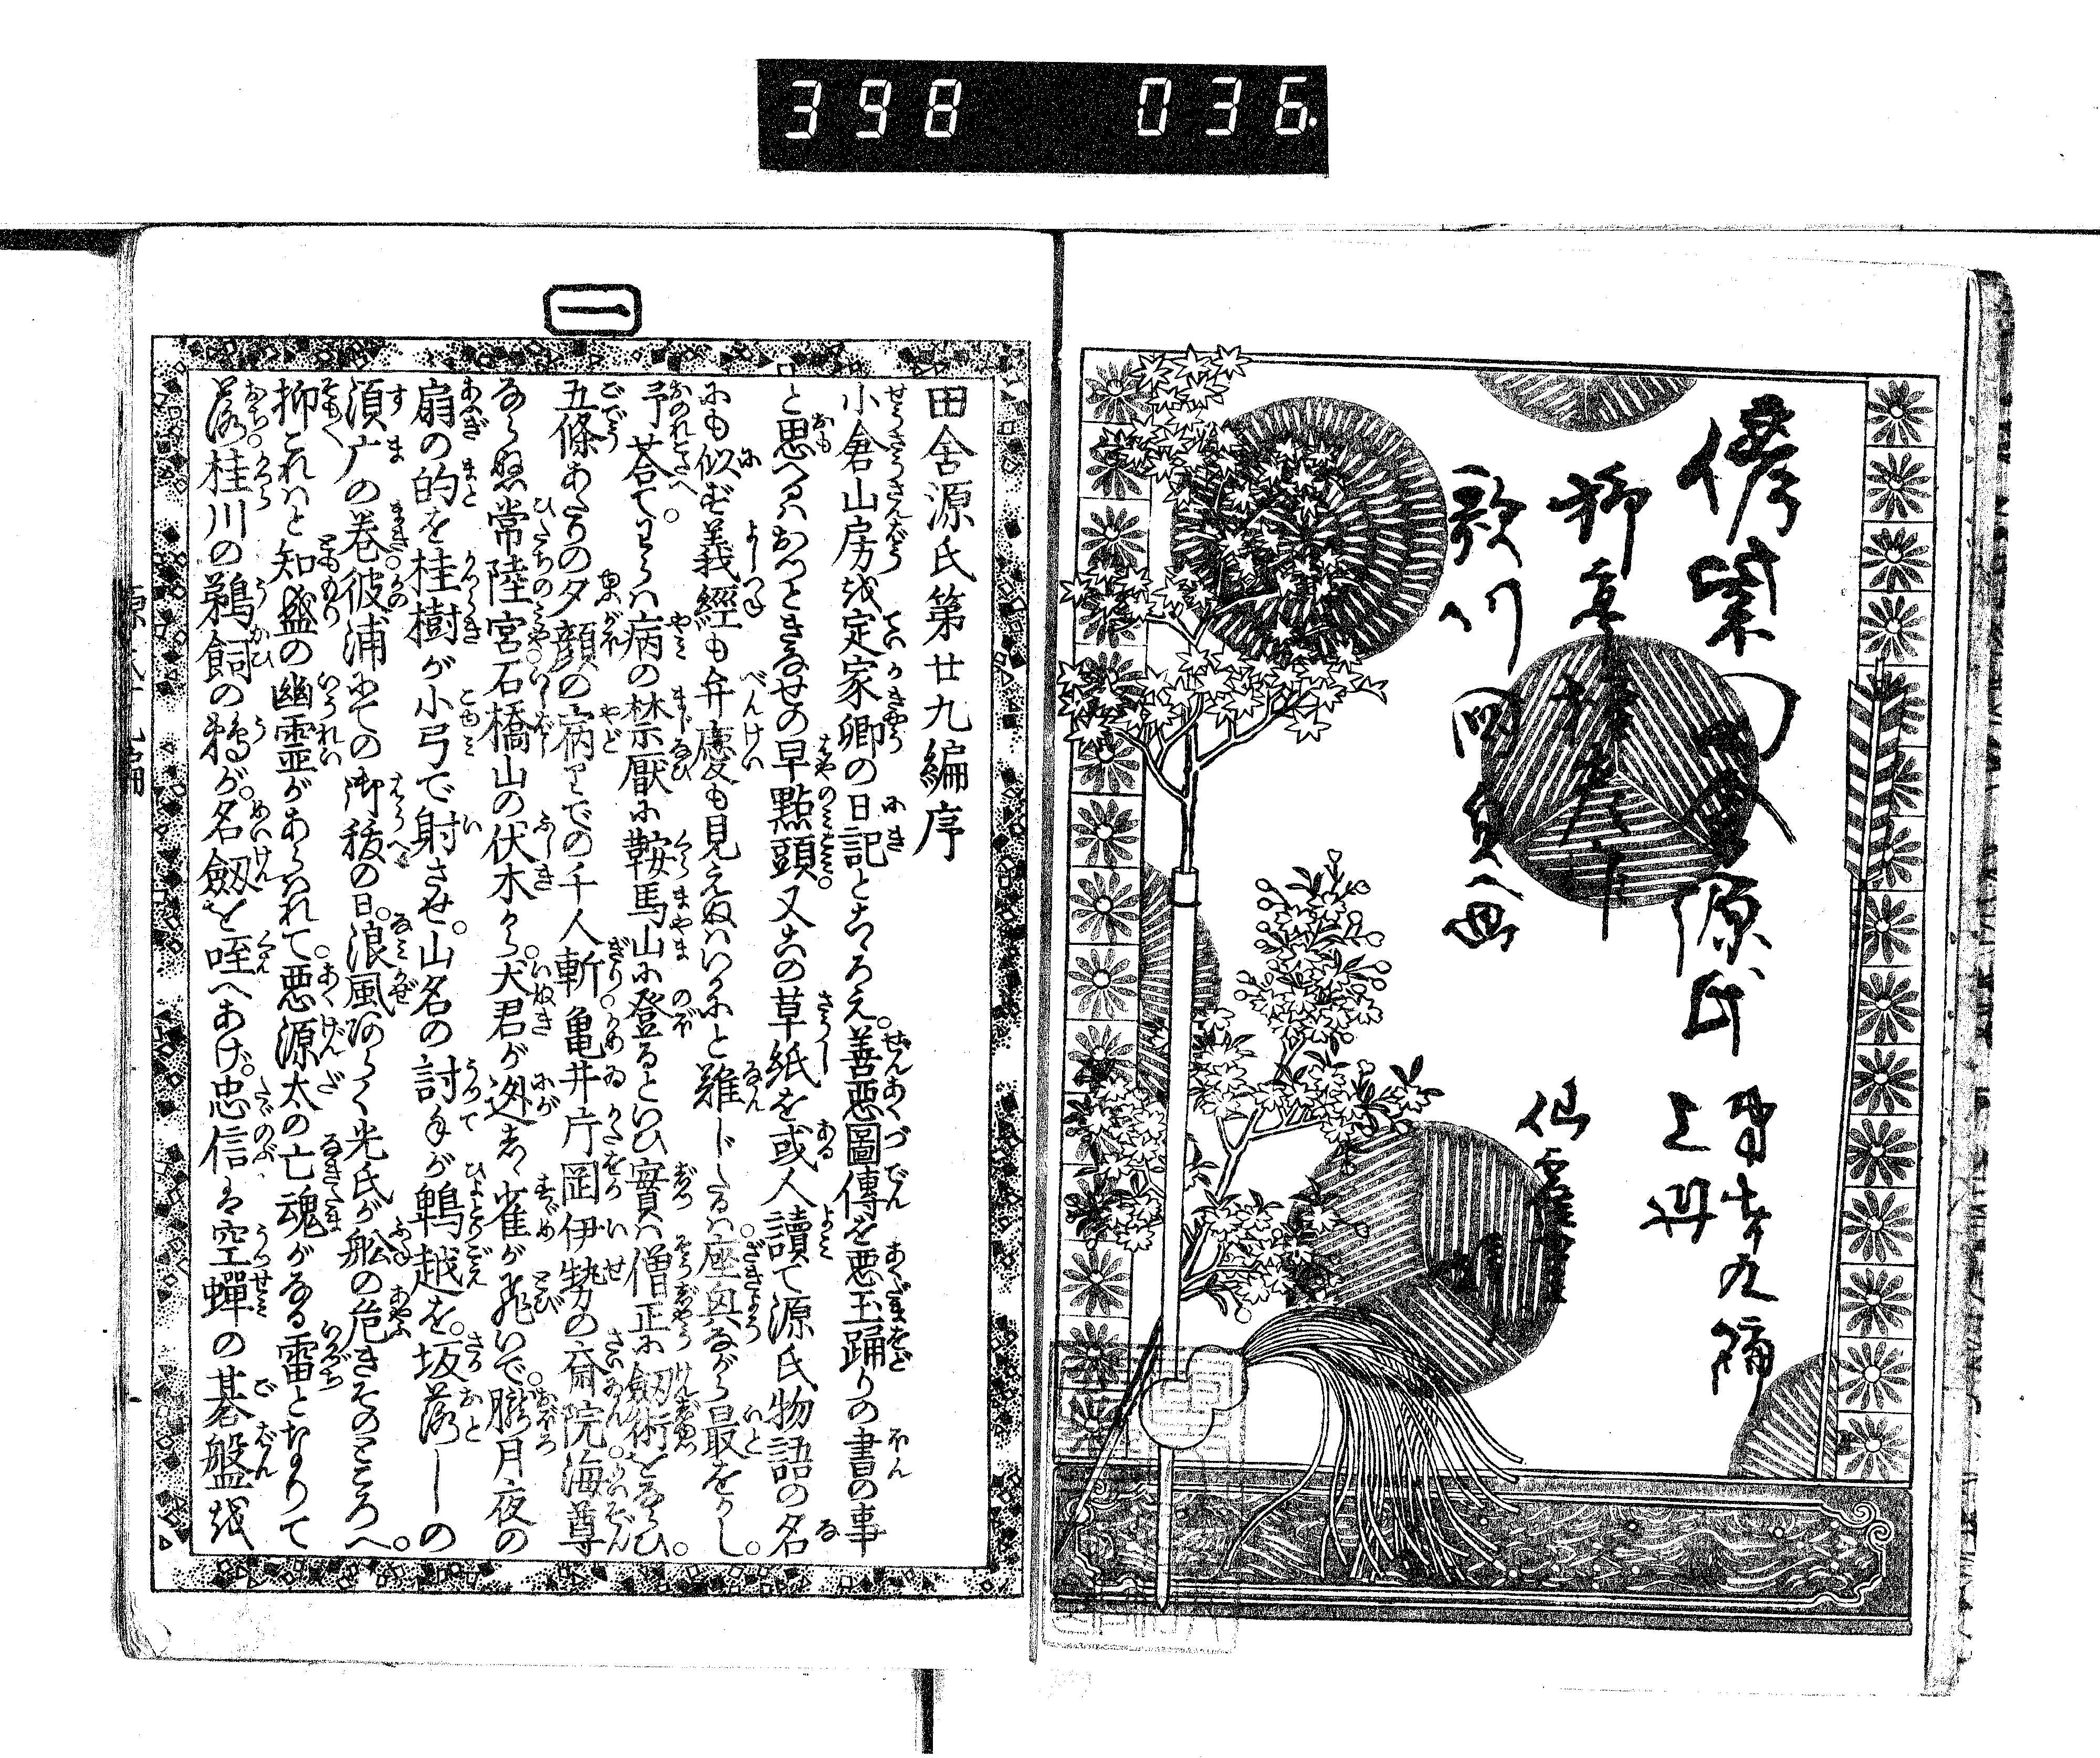 398 036
偐紫田舎源氏
第廿九編
上冊
柳亭種彦作
歌川国貞画
仙鶴堂
一
田舎源氏第廿九編序
小倉山房を定家卿の日記とこゝろえ。善悪圖傳を悪玉踊りの書の事
と思へるハおつときなせの早點頭。又この草紙を或人讀て源氏物語の名
にも似ず義經も弁慶も見えぬハいかにと難じたるハ。座興ながら最をかし。
予荅て。それハ病の禁厭に鞍馬山に登るといひ實ハ僧正に劔術をならひ。
五條あたりの夕顔の宿りでの千人斬。亀井片岡伊勢の斎院。海尊
ならぬ常陸宮。石橋山の伏木から。犬君が迯した雀が飛いで。朧月夜の
扇の的を桂樹が小弓で射させ。山名の討手が鵯越を。坂落しの
須广の巻。彼浦にての御祓の日。浪風あらく光氏が舩の危きそのところへ。
抑これハと知盛の幽霊があらはれて。悪源太の亡魂がなる雷となりて
落。桂川の鵜飼の鵜が。名劔を咥へあげ。忠信は空蟬の碁盤を